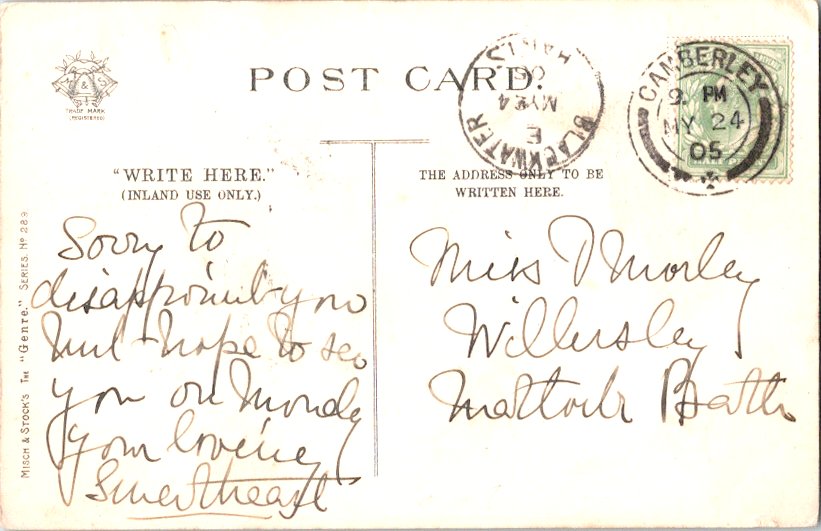 M & S
TRADE MARK
(REGISTERED)
POST CARD.
BLACKWATER
E
MY 24
05
HANTS
CAMBERLEY
9. PM
MY 24
05
HALF PENNY
"WRITE HERE."
(INLAND USE ONLY.)
THE ADDRESS ONLY TO BE
WRITTEN HERE.
Sorry to
disappoint you
but hope to see
you on Monday
your loving
Sweetheart
Miss D Morley
Willersley
Mattock Bath
MISCH & STOCK'S THE "Genre." SERIES. No 289